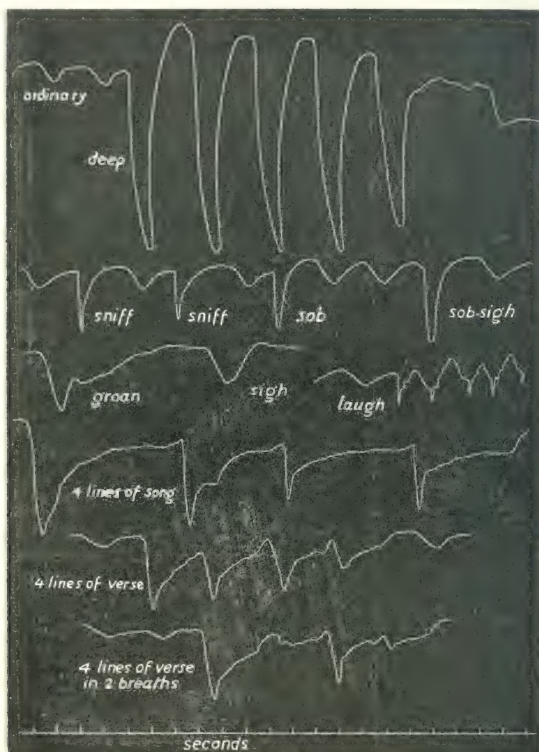 ordinary
deep
sniff
sniff
sob
sob-sigh
groan
sigh
laugh
4 lines of song
4 lines of verse
4 lines of verse
in 2 breaths
seconds